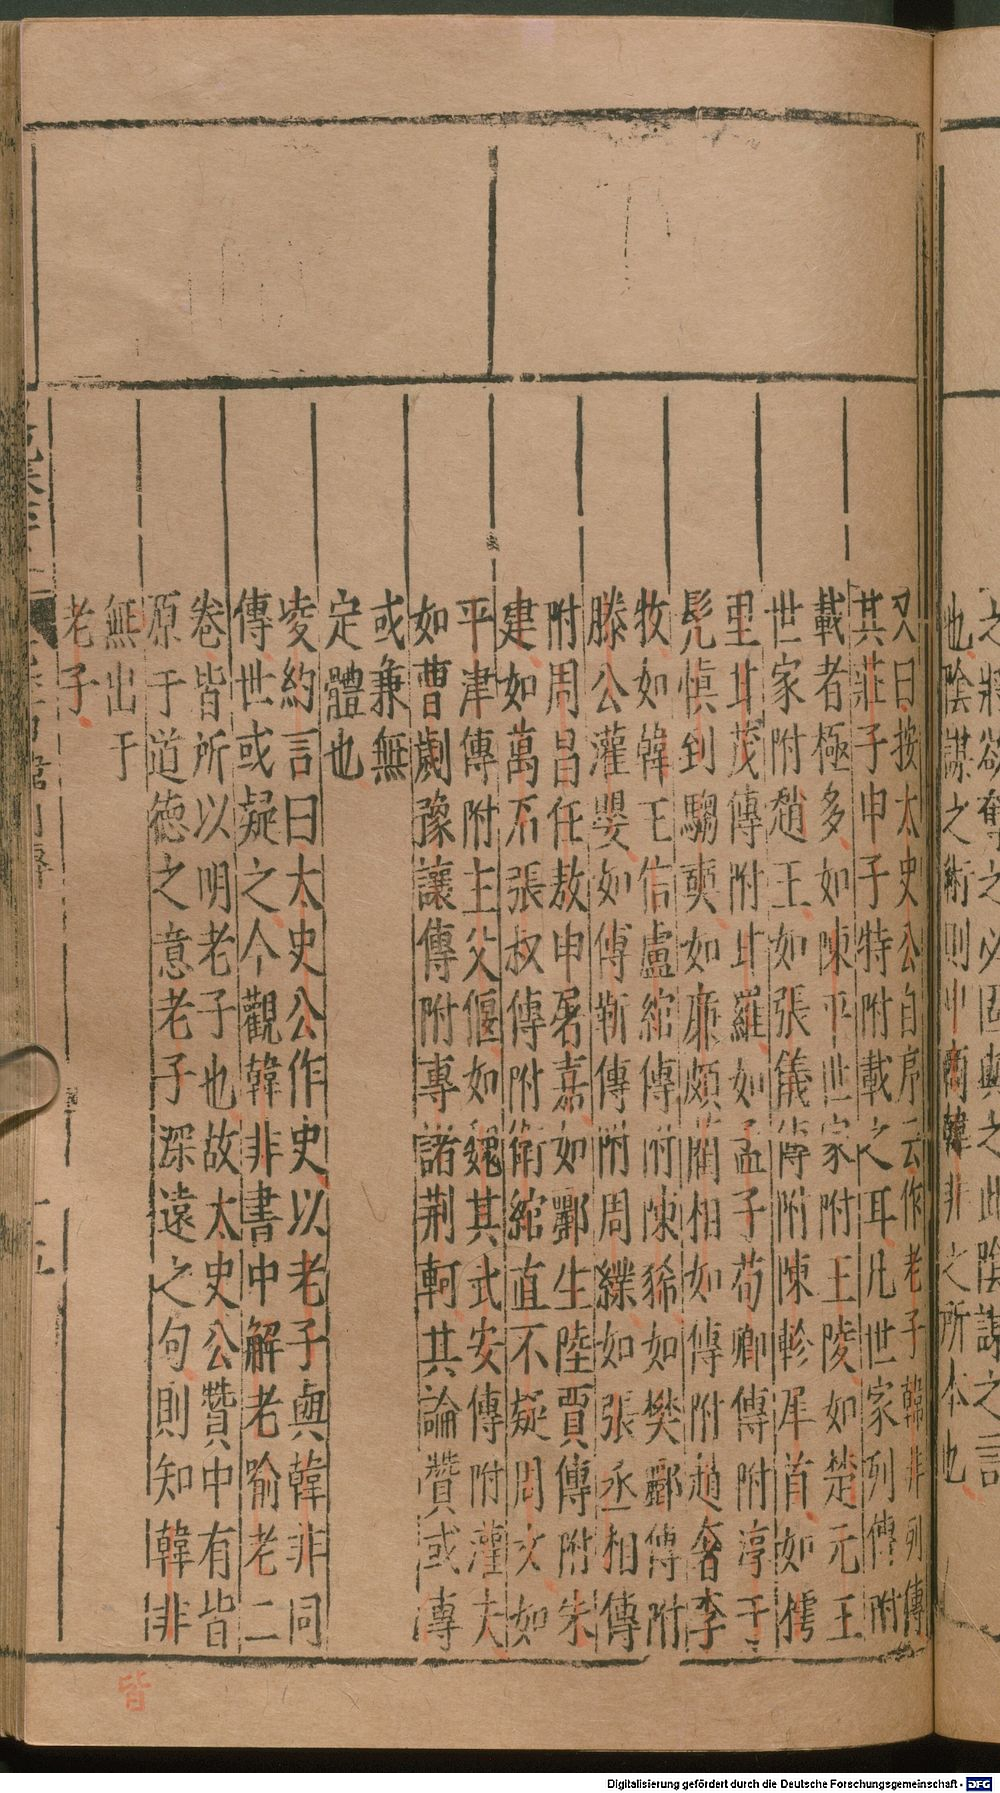 又曰按太史公自序云作老子韓非列傳
其莊子申子特附載之耳凡世家列傳附
載者極多如陳平世家附王陵如楚元王
世家附趙王如張儀傳附陳軫犀首如樗
里甘茂傳附甘羅如孟子荀卿傳附淳于
髠慎到騶奭如廉頗藺相如傳附趙奢李
牧如韓王信盧綰傳附陳豨如樊酈傳附
滕公灌嬰如傅靳傳附周緤如張丞相傳
附周昌任敖申屠嘉如酈生陸賈傳附朱
建如萬石張叔傳附衛綰直不疑周文如
平津傳附主父偃如魏其武安傳附灌夫
如曹劌豫讓傳附專諸荆軻其論贊或傳
或兼無
定體也
凌約言曰太史公作史以老子與韓非同
傳世或疑之今觀韓非書中解老喻老二
卷皆所以明老子也故太史公贊中有皆
原于道德之意老子深遠之句則知韓非
無出于
老子
皆
Digitalisierung gefördert durch die Deutsche Forschungsgemeinschaft - DFG